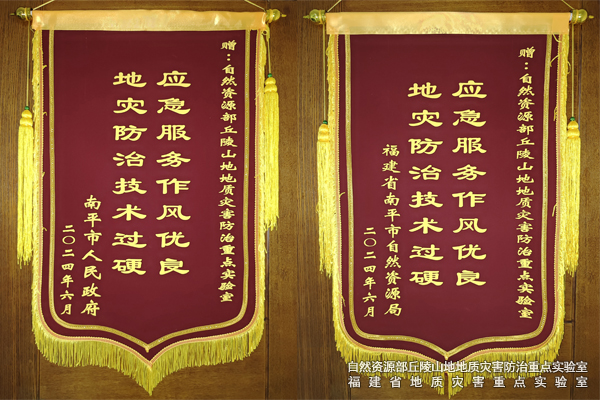 赠：自然资源部丘陵山地地质灾害防治重点实验室
应急服务作风优良
地灾防治技术过硬
南平市人民政府
二〇二四年六月
赠：自然资源部丘陵山地地质灾害防治重点实验室
应急服务作风优良
地灾防治技术过硬
福建省南平市自然资源局
二〇二四年六月
自然资源部丘陵山地地质灾害防治重点实验室
福建省地质灾害重点实验室